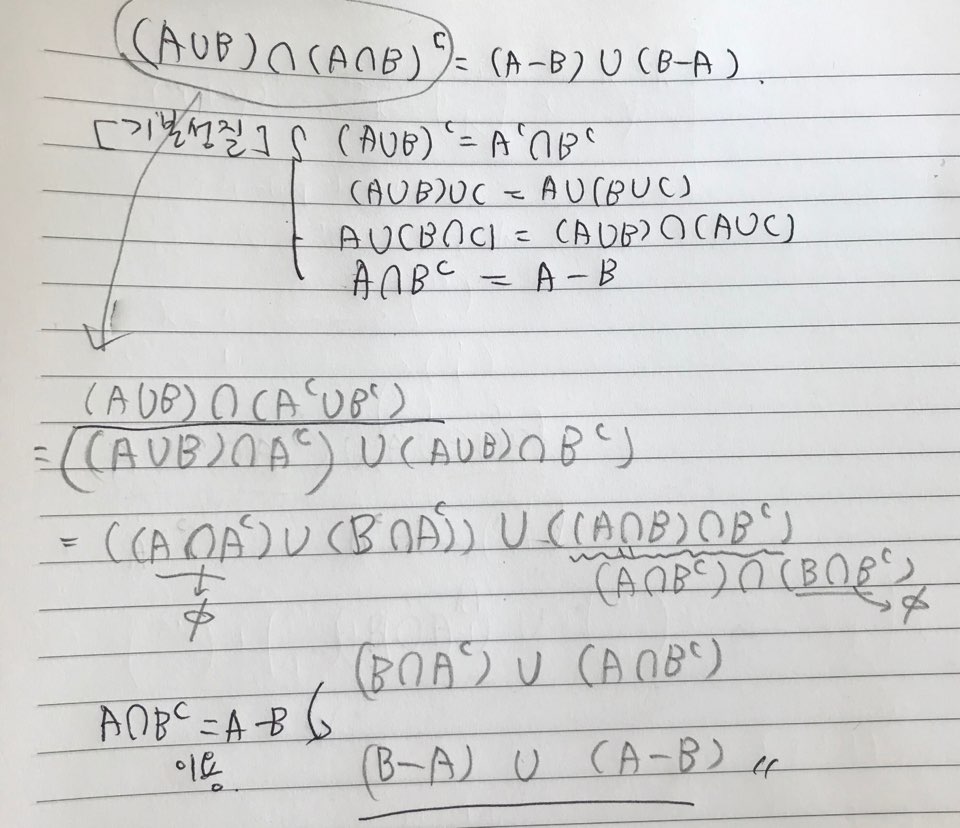 (A∪B)∩(A∩B)ᶜ = (A-B) ∪ (B-A).
[기본성질] { (A∪B)ᶜ = Aᶜ∩Bᶜ
(A∪B)∪C = A∪(B∪C)
A∪(B∩C) = (A∪B)∩(A∪C)
A∩Bᶜ = A-B
(A∪B)∩(Aᶜ∪Bᶜ)
= ((A∪B)∩Aᶜ) ∪ (A∪B)∩Bᶜ)
= ((A∩Aᶜ)∪(B∩Aᶜ)) ∪ ((A∩B)∩Bᶜ)
(A∩Bᶜ)∩(B∩Bᶜ)
∅ → ∅
(B∩Aᶜ) ∪ (A∩Bᶜ)
A∩Bᶜ = A-B
이용.
(B-A) ∪ (A-B) 〃